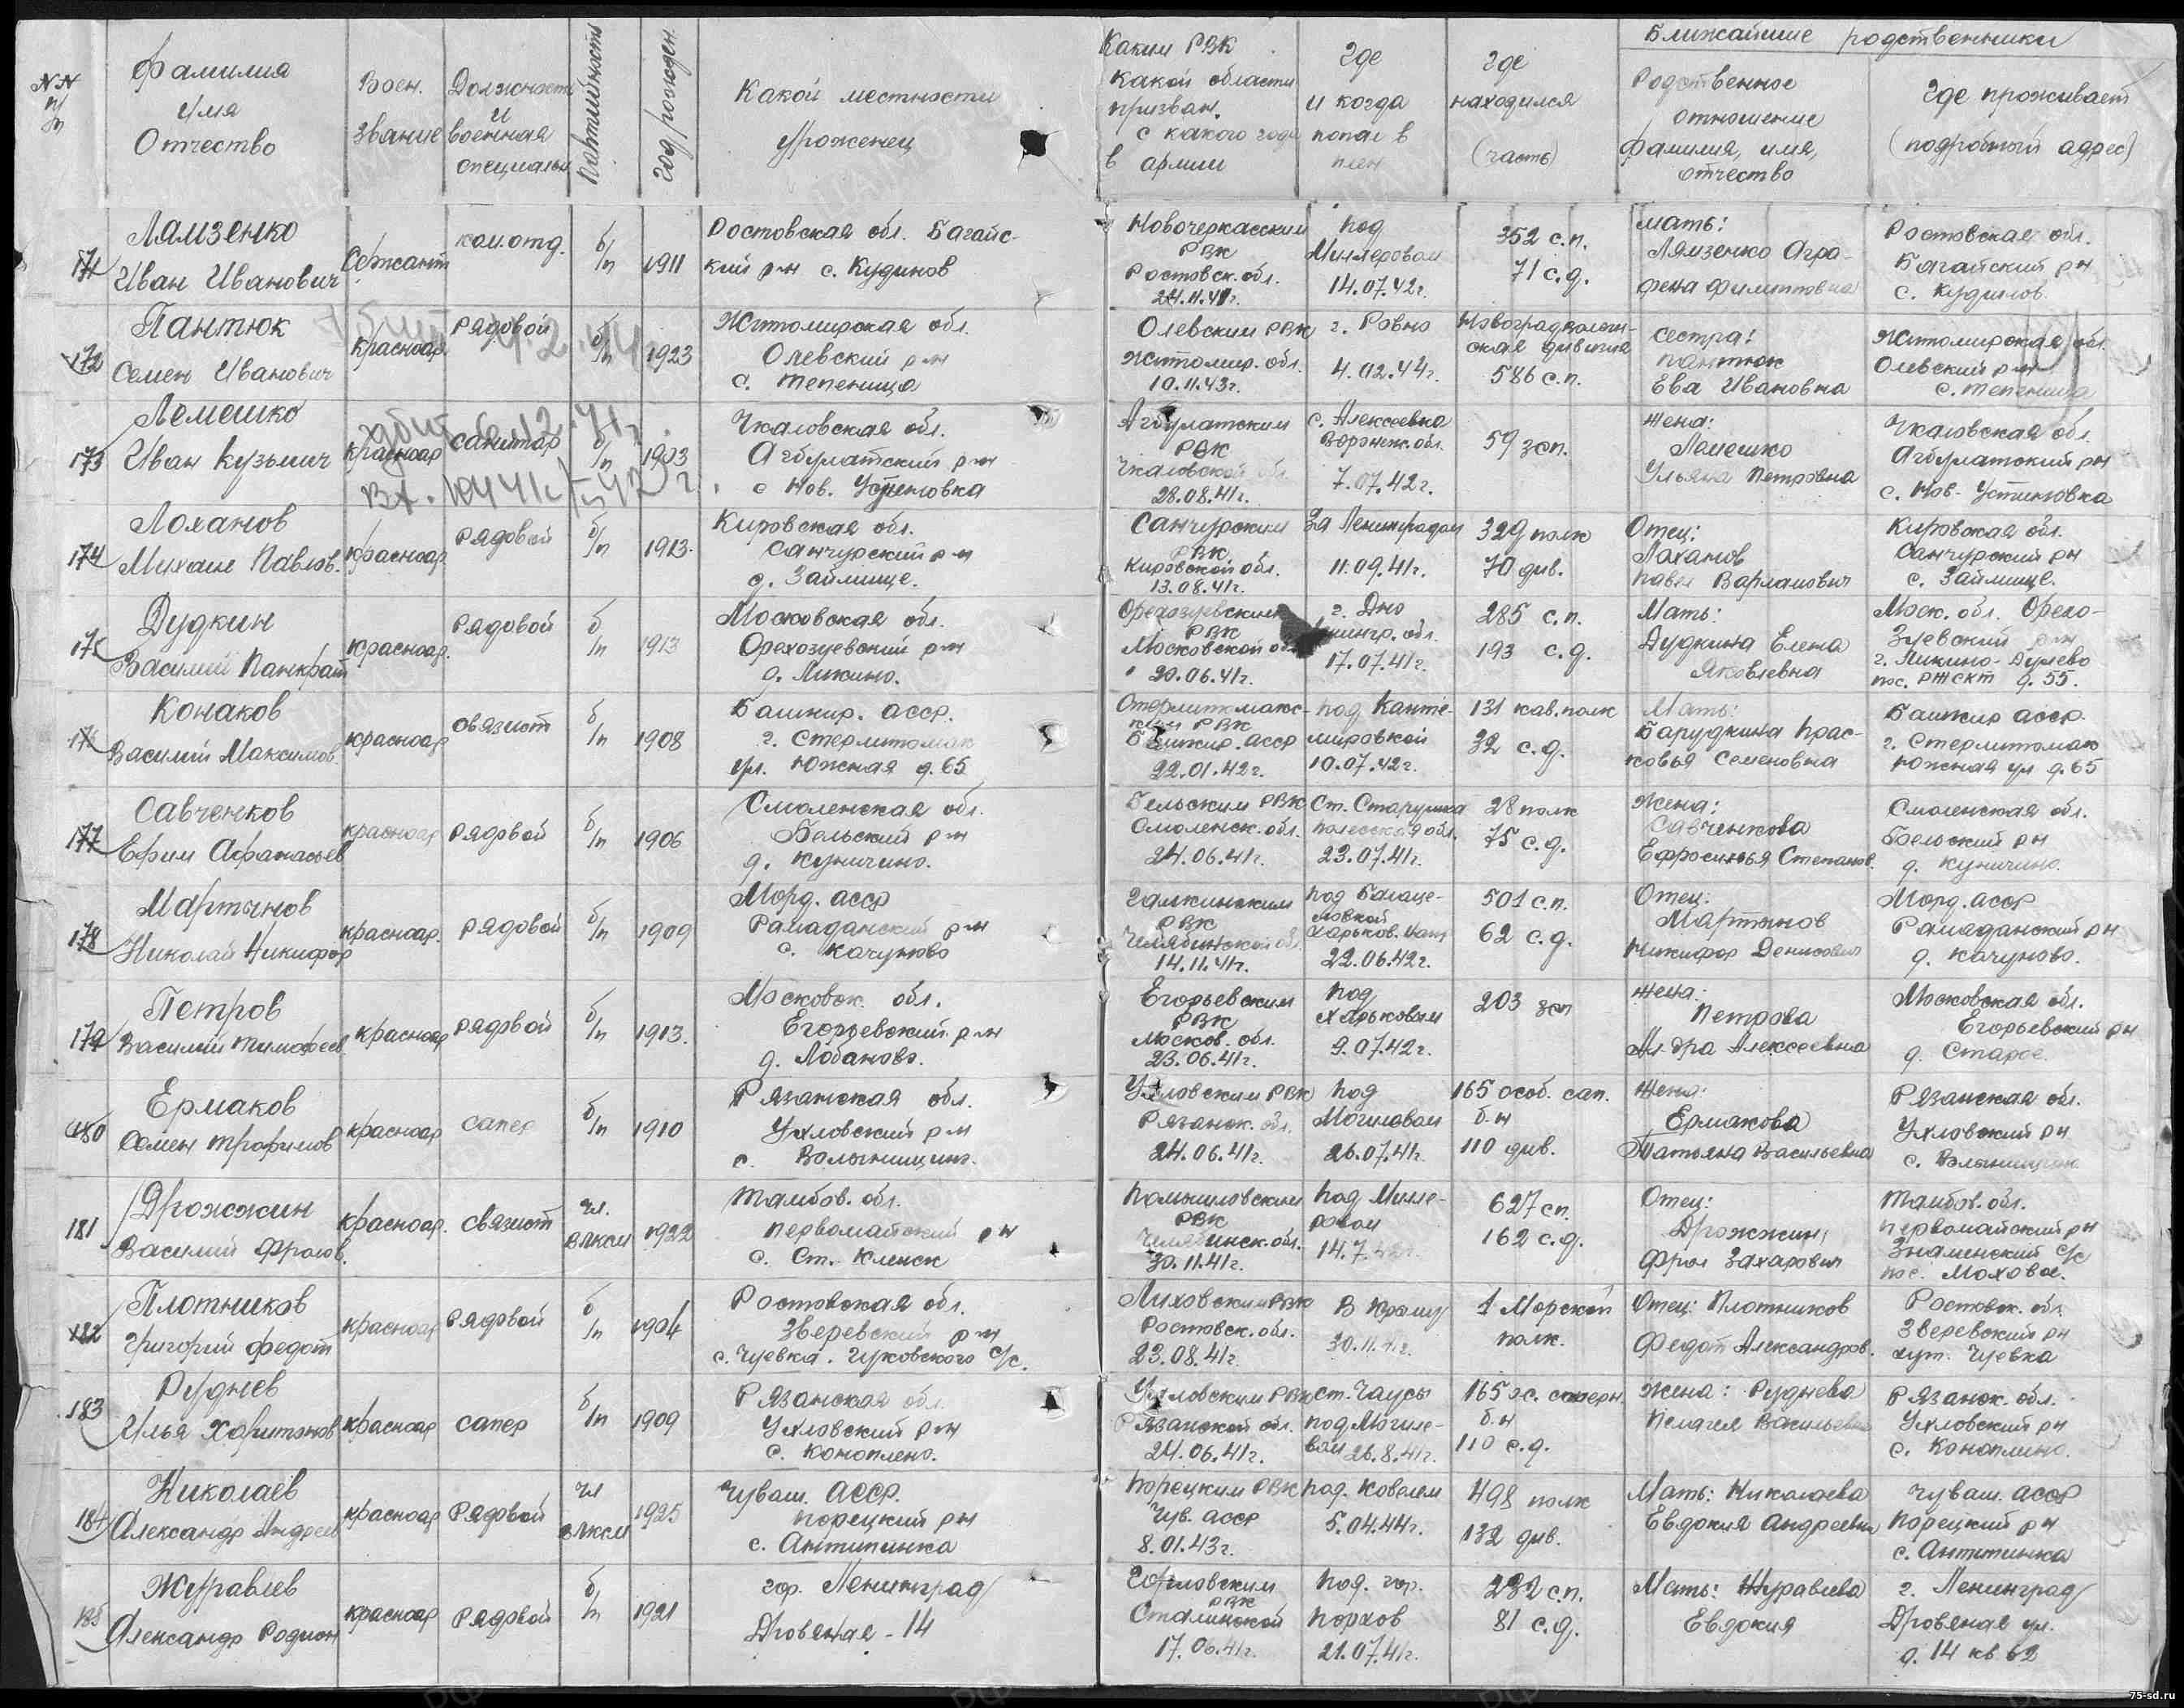 NN п/п
Фамилия Имя Отчество
Воен. Звание
Должность и военная специальн.
Партийность
Год рожден.
Какой местности уроженец
Каким РВК какой области призван. с какого года в армии
Где и когда попал в плен
Где находился (часть)
Ближайшие родственники
Родственное отношение фамилия, имя, отчество
Где проживает (подробный адрес)
171 Лямзенко Иван Иванович
Сержант
ком.отд.
б/п
1911
Ростовская обл. Багайс-
кий р-н с. Кудинов
Новочеркасским
РВК
Ростовск. обл.
под
Миллеровом
14.07.42г.
352 с.п.
71 с.д.
мать:
Лямзенко Агра-
фена Филипповна
Ростовская обл.
Багайский рн
с. Кудинов.
172 Пантюк
Семен Иванович
Красноар.
Рядовой
б/п
1923
Житомирская обл.
Олевский р-н
с. Тепеница
Олевским РВК
Житомир. обл.
10.11.43г.
г. Ровно
4.02.44г.
Новоградволын-
ская дивизия
586 с.п.
сестра:
Пантюк
Ева Ивановна
Житомирская обл.
Олевский р-н
с. Тепеница
173 Лемешко
Иван Кузьмич
Красноар
санитар
б/п
1903
Чкаловская обл.
Агбулатский р-н
с Нов. Устиновка
Агбулатским
РВК
Чкаловской обл.
28.08.41г.
с. Алексеевка
Воронеж. обл.
7.07.42г.
59 зсп.
жена:
Лемешко
Ульяна Петровна
Чкаловская обл.
Агбулатский рн
с. Нов. Устиновка
174 Лоханов
Михаил Павлов.
Красноар.
рядовой
б/п
1913.
Кировская обл.
Санчурский р-н
д. Займище.
Санчурским
РВК
Кировской обл.
13.08.41г.
За Ленинградом
11.09.41г.
329 полк
70 див.
Отец:
Лоханов
Павел Варламович
Кировская обл.
Санчурский рн
с. Займище.
175 Дудкин
Василий Панкрат
Красноар.
Рядовой
б/п
1913
Московская обл.
Орехозуевский р-н
д. Ликино.
Орехозуевским
РВК
Московской обл
20.06.41г.
г. Дно
17.07.41г.
285 с.п.
193 с.д.
Мать:
Дудкина Елена
Яковлевна
Моск. обл. Орехо-
Зуевский р-н
г. Ликино-Дулево
д. 55.
Конаков
Василий Максимов.
красноар
связист
б/п
1908
Башкир. асср.
г. Стерлитомак
ул. Южная д. 65
Стерлитомакс-
ким РВК
Башкир. асср
22.01.42г.
под Канте-
мировкой
10.07.42г.
131 кав. полк
32 с.д.
Мать:
Барудкина Прас-
ковья Семеновна
Башкир асср.
г. Стерлитомак
Южная ул д. 65
177 Савченков
Ефим Афанасьев
красноар
Рядовой
б/п
1906
Смоленская обл.
Бельский р-н
д. Куничино.
Бельским РВК
Смоленск. обл.
24.06.41г.
Ст. Старушка
полесской обл.
23.07.41г.
28 полк
75 с.д.
Жена:
Савченкова
Ефросинья Степанов.
Смоленская обл.
Бельский рн
д. Куничино.
178 Мартынов
Николай Никифор
красноар.
рядовой
б/п
1909
Морд. асср
Рамаданский р-н
с. Качуново
Галкинским
РВК
Челябинской обл.
14.11.41г.
22.06.42г.
501 с.п.
62 с.д.
Отец:
Мартынов
Никифор Денисович
Морд. асср
Рамаданский рн
д. Качуново.
179 Петров
Василий Тимофеев
красноар
рядовой
б/п
1913.
Московск. обл.
Егорьевский р-н
д. Лобаново.
Егорьевским
РВК
Москов. обл.
23.06.41г.
Под
Харьковом
9.07.42г.
203 зсп
жена:
Петрова
Ал-дра Алексеевна
Московская обл.
Егорьевский рн
д. Старое.
180 Ермаков
Семен Трофимов
красноар
сапер
б/п
1910
Рязанская обл.
Ухловский р-н
Ухловским РВК
Рязанск. обл.
24.06.41г.
Под
Могилевом
26.07.41г.
165 особ. сап.
б.н
110 див.
жена:
Ермакова
Татьяна Васильевна
Рязанская обл.
Ухловский рн
181 Дрожжин
Василий Фролов.
красноар.
связист
чл.
влксм
1922
Тамбов. обл.
Первомайский рн
с. Ст. Кленск
РВК
Челябинск. обл.
30.11.41г.
Под Милле-
ровом
14.7.42г.
627 сп.
162 с.д.
Отец:
Дрожжин
Фрол Захарович
Тамбов. обл.
Первомайский рн
Знаменский с/с
пос. Моховое.
182 Плотников
Григорий Федот
красноар
Рядовой
б/п
1904
Ростовская обл.
Зверевский р-н
с. Чуевка. Гуковского с/с.
Лиховским РВК
Ростовск. обл.
23.08.41г.
В Крыму
1 Морской
полк.
Отец: Плотников
Федот Александров.
Ростовск. обл.
Зверевский рн
хут. Чуевка
183 Руднев
Илья Харитонов
красноар
сапер
б/п
1909
Рязанская обл.
Ухловский р-н
с. Коноплено.
Ухловским РВК
Рязанской обл.
24.06.41г.
ст. Чаусы
под Могиле-
вом 26.8.41г.
б.н
110 с.д.
Жена: Руднева
Пелагея Васильевна
Рязанск. обл.
Ухловский рн
с. Коноплино.
184 Николаев
Александр Андреев
красноар
Рядовой
чл
влксм
1925
Чуваш. АССР.
Порецкий рн
с. Антипинка
Порецким РВК
Чув. асср
8.01.43г.
под. Ковелем
5.04.44г.
498 полк
132 див.
Мать: Николаева
Евдокия Андреевна
Чуваш. асср
Порецкий рн
с. Антипинка
185 Журавлев
Александр Родион
красноар
Рядовой
б/п
1921
гор. Ленинград
Дровяная - 14
Горловским
РВК
Сталинской
17.06.41г.
Под. гор.
Порхов
21.07.41г.
232 с.п.
81 с.д.
Мать: Журавлева
Евдокия
г. Ленинград
Дровяная ул.
д. 14 кв 62
75-sd.ru